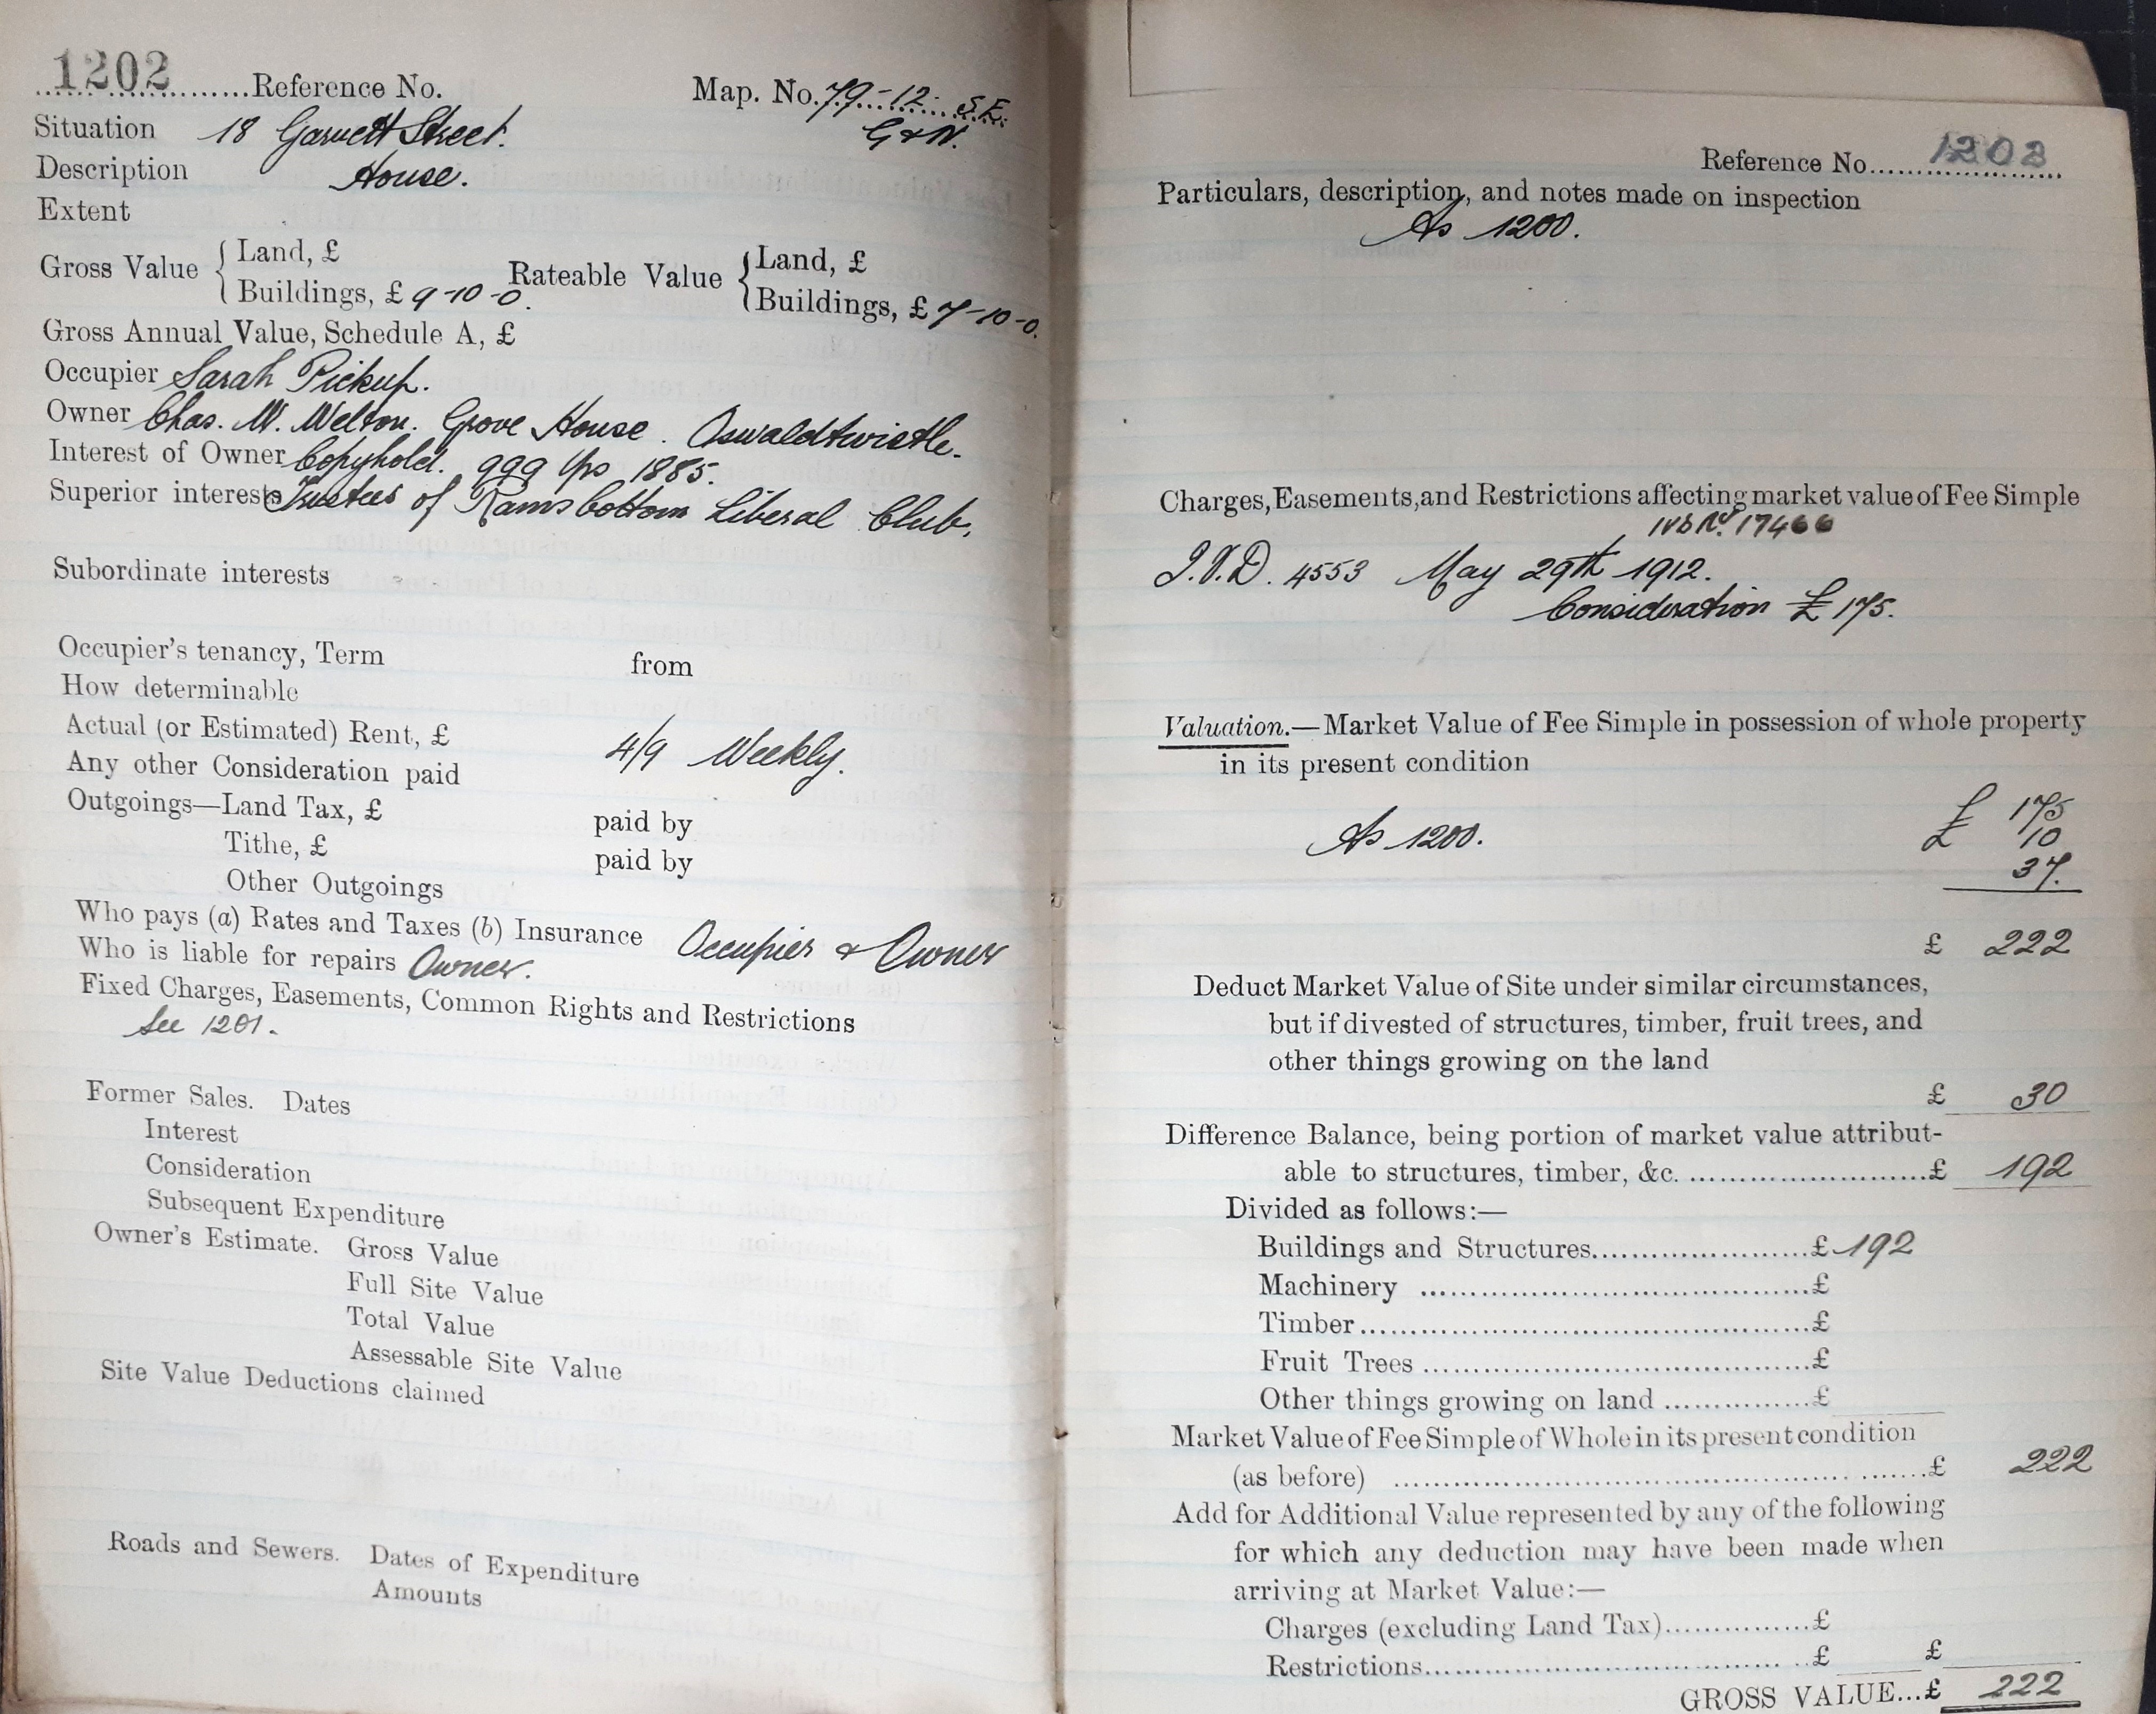 1202 Reference No. Map. No. 79-12. S.E.
G & N.
Situation 18 Garnett Street.
Description House.
Extent
Gross Value { Land, £ Rateable Value { Land, £
Buildings, £ 9-10-0. Buildings, £ 7-10-0.
Gross Annual Value, Schedule A, £
Occupier Sarah Pickup.
Owner Chas. W. Welton. Grove House. Oswaldtwistle.
Interest of Owner Copyhold. 999 Yrs 1885.
Superior interests Trustees of Ramsbottom Liberal Club.
Subordinate interests
Occupier's tenancy, Term from
How determinable
Actual (or Estimated) Rent, £ 4/9 Weekly.
Any other Consideration paid
Outgoings—Land Tax, £ paid by
Tithe, £ paid by
Other Outgoings
Who pays (a) Rates and Taxes (b) Insurance Occupier & Owner
Who is liable for repairs Owner.
Fixed Charges, Easements, Common Rights and Restrictions
See 1201.
Former Sales. Dates
Interest
Consideration
Subsequent Expenditure
Owner's Estimate. Gross Value
Full Site Value
Total Value
Assessable Site Value
Site Value Deductions claimed
Roads and Sewers. Dates of Expenditure
Amounts
Reference No. 1202
Particulars, description, and notes made on inspection
As 1200.
Charges, Easements, and Restrictions affecting market value of Fee Simple
17466
I.V.D. 4553 May 29th 1912.
Consideration £175.
Valuation.—Market Value of Fee Simple in possession of whole property
in its present condition
£ 175
As 1200. £ 10
37.
£ 222
Deduct Market Value of Site under similar circumstances,
but if divested of structures, timber, fruit trees, and
other things growing on the land
£ 30
Difference Balance, being portion of market value attribut-
able to structures, timber, &c. £ 192
Divided as follows:—
Buildings and Structures £ 192
Machinery £
Timber £
Fruit Trees £
Other things growing on land £
Market Value of Fee Simple of Whole in its present condition
(as before) £ 222
Add for Additional Value represented by any of the following
for which any deduction may have been made when
arriving at Market Value:—
Charges (excluding Land Tax) £
Restrictions £ £
GROSS VALUE...£ 222